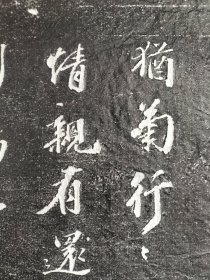 猶菊行〻
情親有還